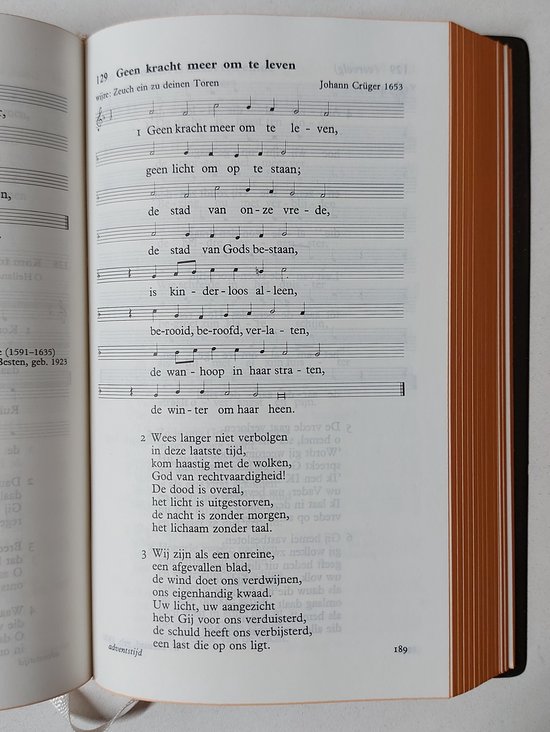 129 Geen kracht meer om te leven
wijze: Zeuch ein zu deinen Toren Johann Crüger 1653
1 Geen kracht meer om te le - ven,
geen licht om op te staan;
de stad van on - ze vre - de,
de stad van Gods be - staan,
is kin - der - loos al - leen,
be - rooid, be - roofd, ver - la - ten,
de wan - hoop in haar stra - ten,
de win - ter om haar heen.
2 Wees langer niet verbolgen
in deze laatste tijd,
kom haastig met de wolken,
God van rechtvaardigheid!
De dood is overal,
het licht is uitgestorven,
de nacht is zonder morgen,
het lichaam zonder taal.
3 Wij zijn als een onreine,
een afgevallen blad,
de wind doet ons verdwijnen,
ons eigenhandig kwaad.
Uw licht, uw aangezicht
hebt Gij voor ons verduisterd,
de schuld heeft ons verbijsterd,
een last die op ons ligt.
adventstijd
189
(1591–1635)
Besten, geb. 1923